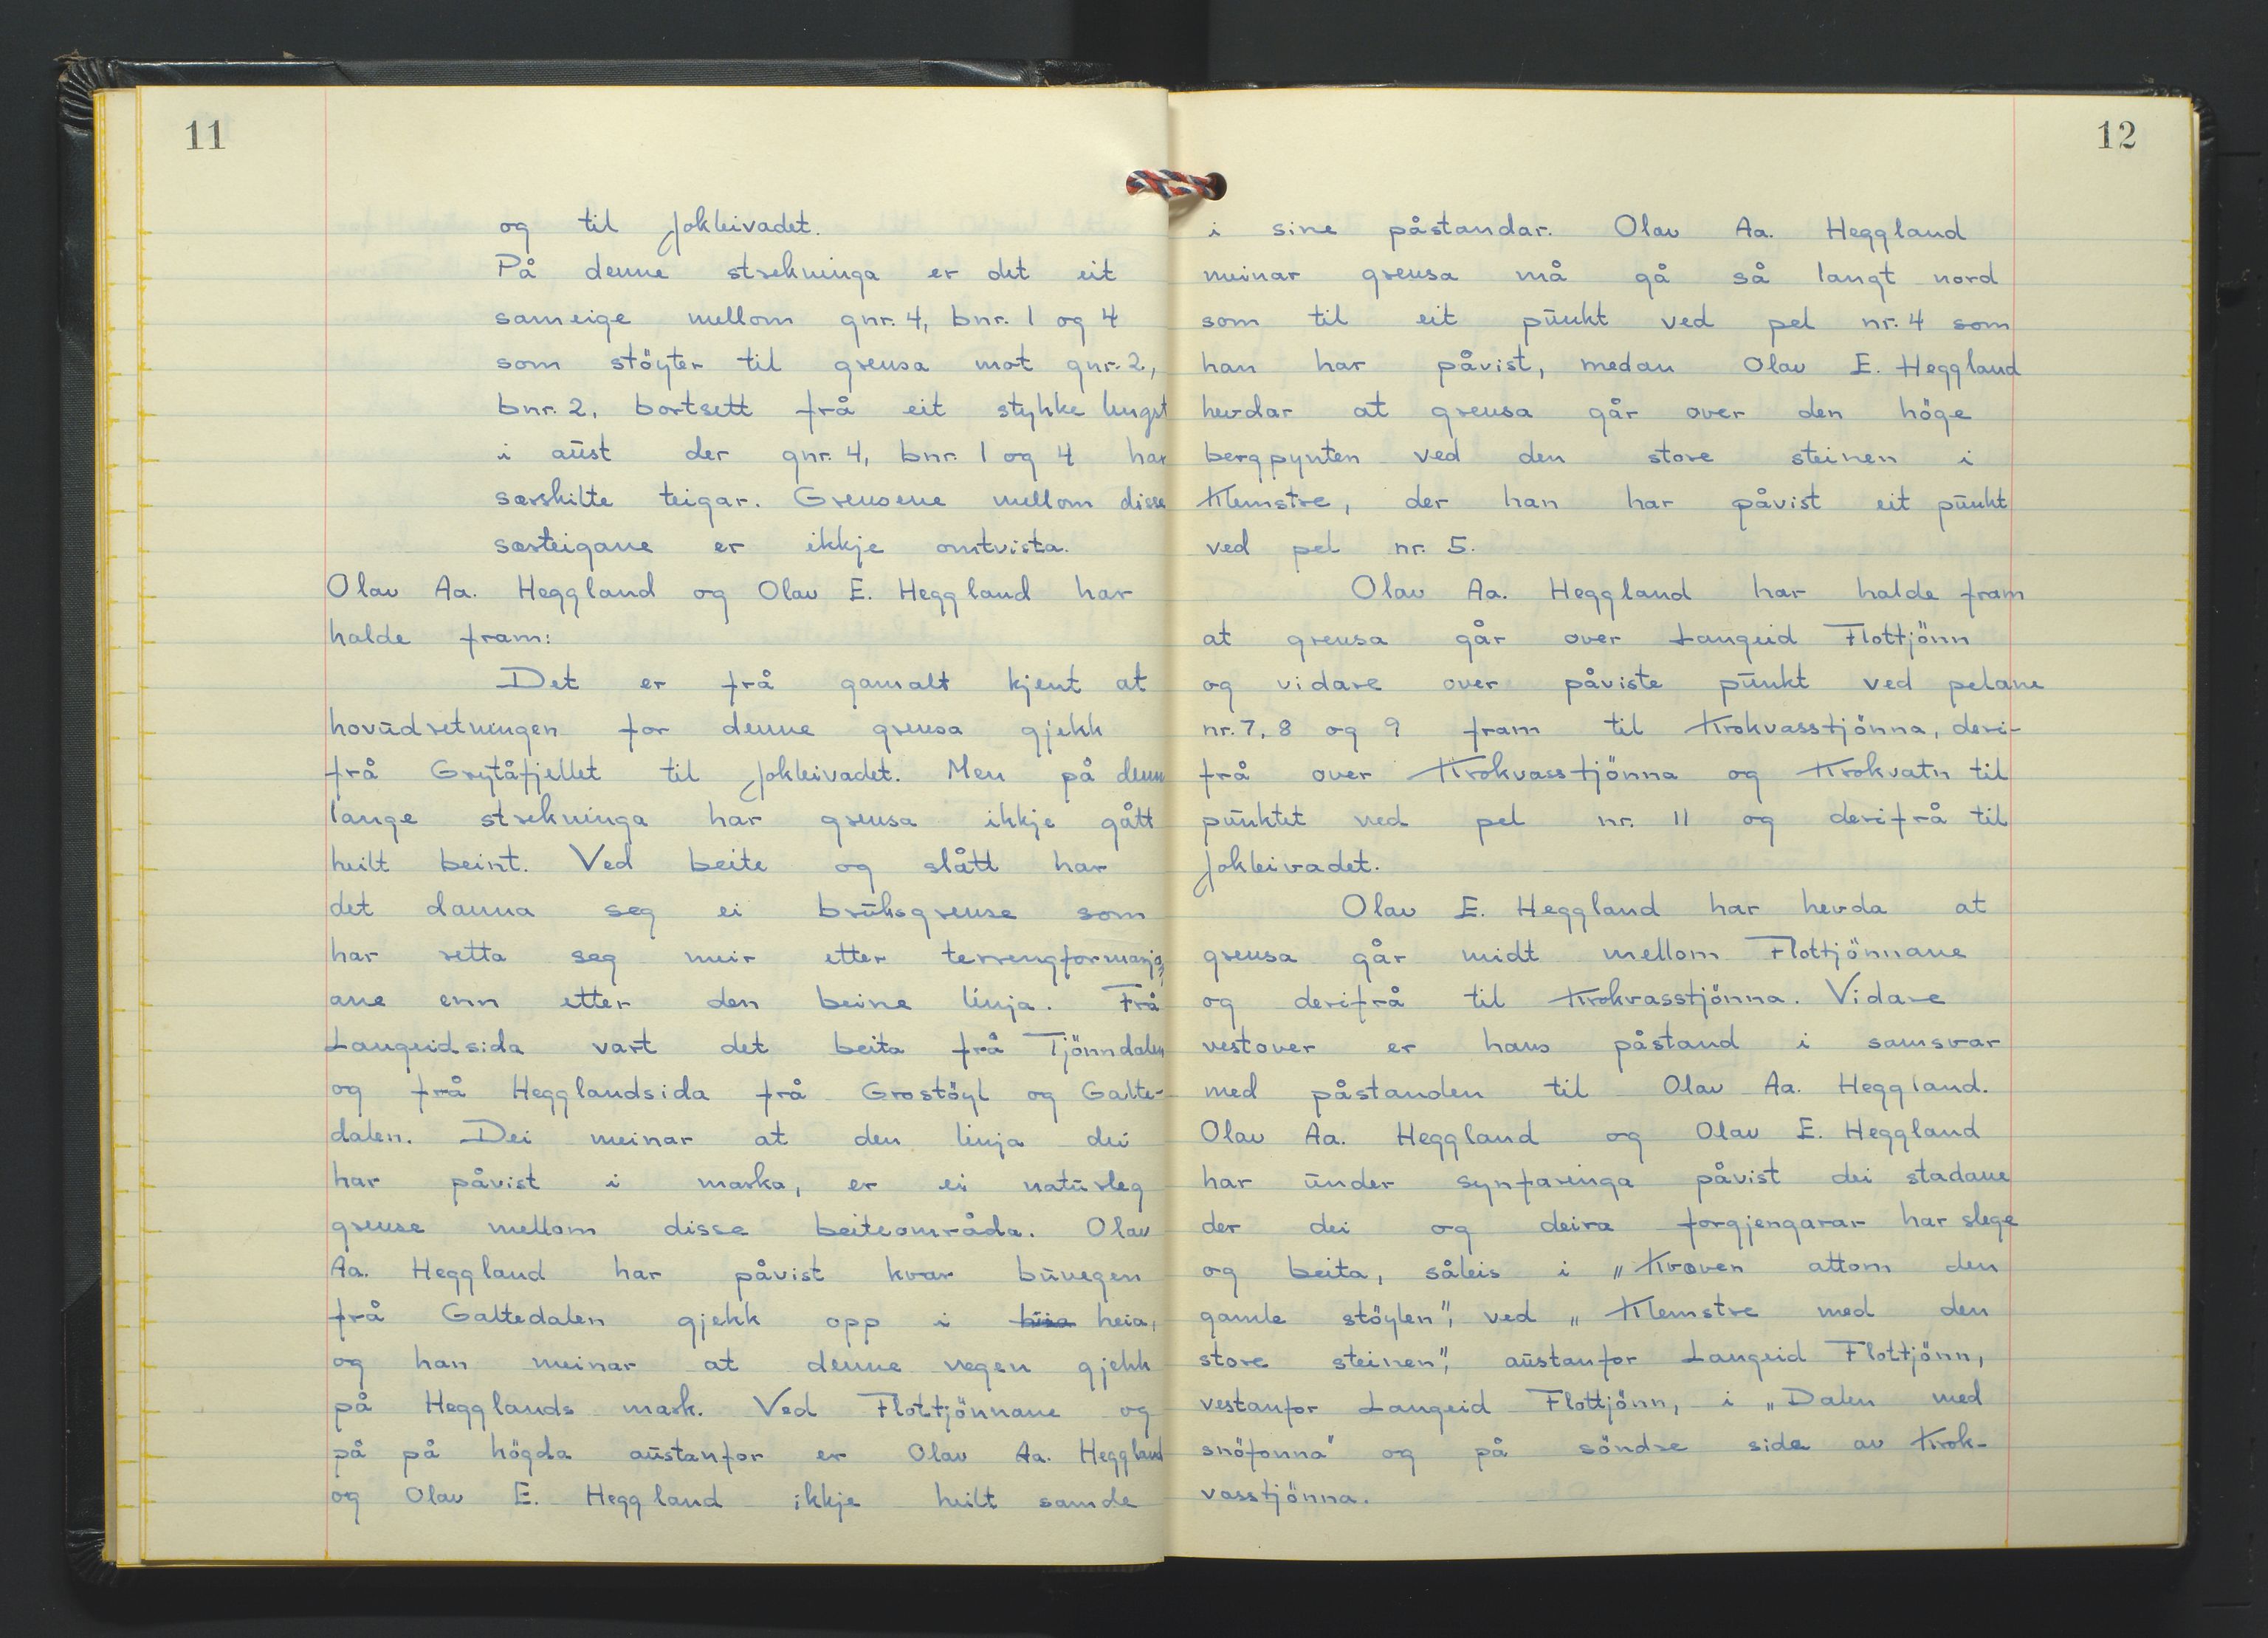 11
og til Jokleivadet.
På denne strekninga er det eit
sameige mellom gnr. 4, bnr. 1 og 4
som støyter til grensa mot gnr. 2,
bnr. 2, bortsett frå eit stykke lengst
i aust der gnr. 4, bnr. 1 og 4 har
særskilte teigar. Grensene mellom disse
særteigane er ikkje omtvista.
Olav Aa. Heggland og Olav E. Heggland har
halde fram:
Det er frå gamalt kjent at
hovudretningen for denne grensa gjekk
frå Grytåfjellet til Jokleivadet. Men på denn
lange strekninga har grensa ikkje gått
heilt beint. Ved beite og slått har
det danna seg ei bruksgrense som
har retta seg meir etter terrengformasjon-
ane enn etter den beine linja. Frå
Langeidsida vart det beita frå Tjönndalen
og frå Hegglandsida frå Grostöyl og Galte-
dalen. Dei meinar at den linja dei
har påvist i marka, er ei naturleg
grense mellom disse beiteområda. Olav
Aa. Heggland har påvist kvar buvegen
frå Galtedalen gjekk opp i heia,
og han meinar at denne vegen gjekk
på Hegglands mark. Ved Flottjönnane og
på på högda austanfor er Olav Aa. Heggland
og Olav E. Heggland ikkje heilt samde
12
i sine påstandar. Olav Aa. Heggland
meinar grensa må gå så langt nord
som til eit punkt ved pel nr. 4 som
han har påvist, medan Olav E. Heggland
hevdar at grensa går over den höge
bergpynten ved den store steinen i
Klemstre, der han har påvist eit punkt
ved pel nr. 5.
Olav Aa. Heggland har halde fram
at grensa går over Langeid Flottjönn
og vidare over påviste punkt ved pelane
nr. 7, 8 og 9 fram til Krokvasstjönna, deri-
frå over Krokvasstjönna og Krokvatn til
punktet ved pel nr. 11 og derifrå til
Jokleivadet.
Olav E. Heggland har hevda at
grensa går midt mellom Flottjönnane
og derifrå til Krokvasstjönna. Vidare
vestover er hans påstand i samsvar
med påstanden til Olav Aa. Heggland.
Olav Aa. Heggland og Olav E. Heggland
har under synfaringa påvist dei stadane
der dei og deira forgjengarar har slege
og beita, såleis i "Kroven attom den
gamle stöylen", ved "Klemstre med den
store steinen", austanfor Langeid Flottjönn,
vestanfor Langeid Flottjönn, i "Dalen med
snöfonna" og på söndre side av Krok-
vasstjönna.